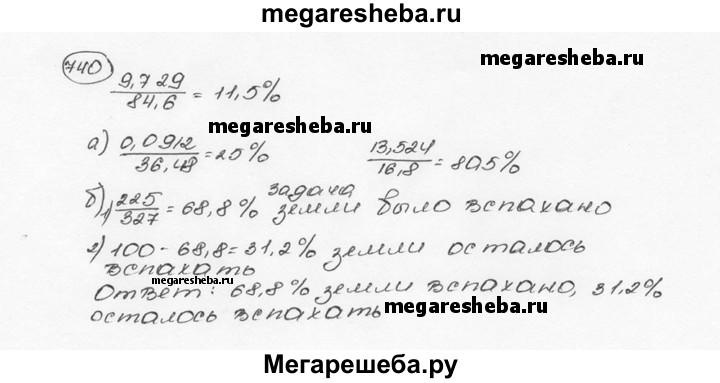 megaresheba.ru
740
9,729/84,6 = 11,5%
megaresheba.ru
а) 0,0912/36,48 = 25% 13,524/16,8 = 80,5%
megaresheba.ru
задача
б) 1) 225/327 = 68,8% земли было вспахано
2) 100 - 68,8 = 31,2% земли осталось
вспахать
megaresheba.ru
Ответ: 68,8% земли вспахано, 31,2%
осталось вспахать
megaresheba.ru
Мегарешеба.ру